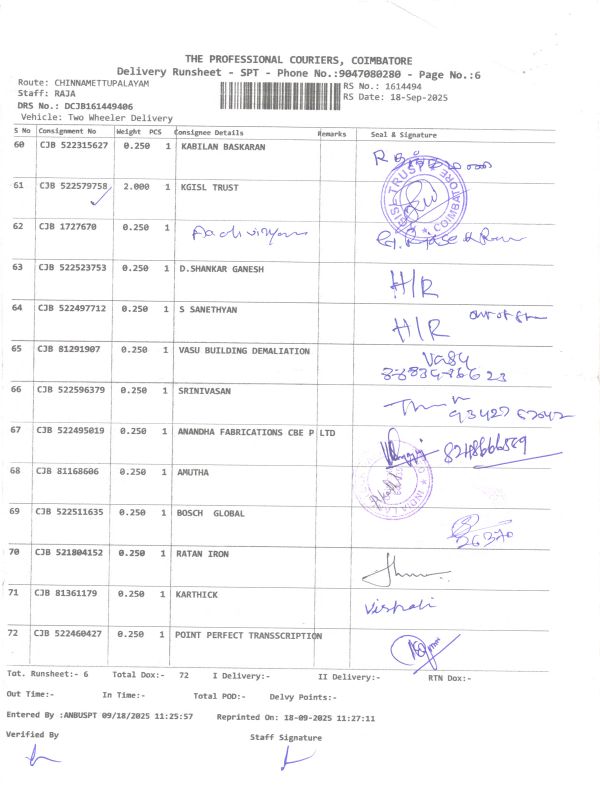 THE PROFESSIONAL COURIERS, COIMBATORE
Delivery Runsheet - SPT - Phone No.:9047080280 - Page No.:6
Route: CHINNAMETTUPALAYAM
RS No.: 1614494
Staff: RAJA
RS Date: 18-Sep-2025
DRS No.: DCJB161449406
Vehicle: Two Wheeler Delivery
S No Consignment No Weight PCS Consignee Details Remarks Seal & Signature
60 CJB 522315627 0.250 1 KABILAN BASKARAN
61 CJB 522579758 2.000 1 KGISL TRUST
TRUST COIMBATORE
62 CJB 1727670 0.250 1
63 CJB 522523753 0.250 1 D.SHANKAR GANESH H/R
64 CJB 522497712 0.250 1 S SANETHYAN H/R out of
65 CJB 81291907 0.250 1 VASU BUILDING DEMALIATION Vasu
66 CJB 522596379 0.250 1 SRINIVASAN
67 CJB 522495019 0.250 1 ANANDHA FABRICATIONS CBE P LTD 8248666589
68 CJB 81168606 0.250 1 AMUTHA
INDIA
69 CJB 522511635 0.250 1 BOSCH GLOBAL
36370
70 CJB 521804152 0.250 1 RATAN IRON
71 CJB 81361179 0.250 1 KARTHICK Vishali
72 CJB 522460427 0.250 1 POINT PERFECT TRANSSCRIPTION
Tot. Runsheet:- 6 Total Dox:- 72 I Delivery:- II Delivery:- RTN Dox:-
Out Time:- In Time:- Total POD:- Delvy Points:-
Entered By :ANBUSPT 09/18/2025 11:25:57 Reprinted On: 18-09-2025 11:27:11
Verified By Staff Signature